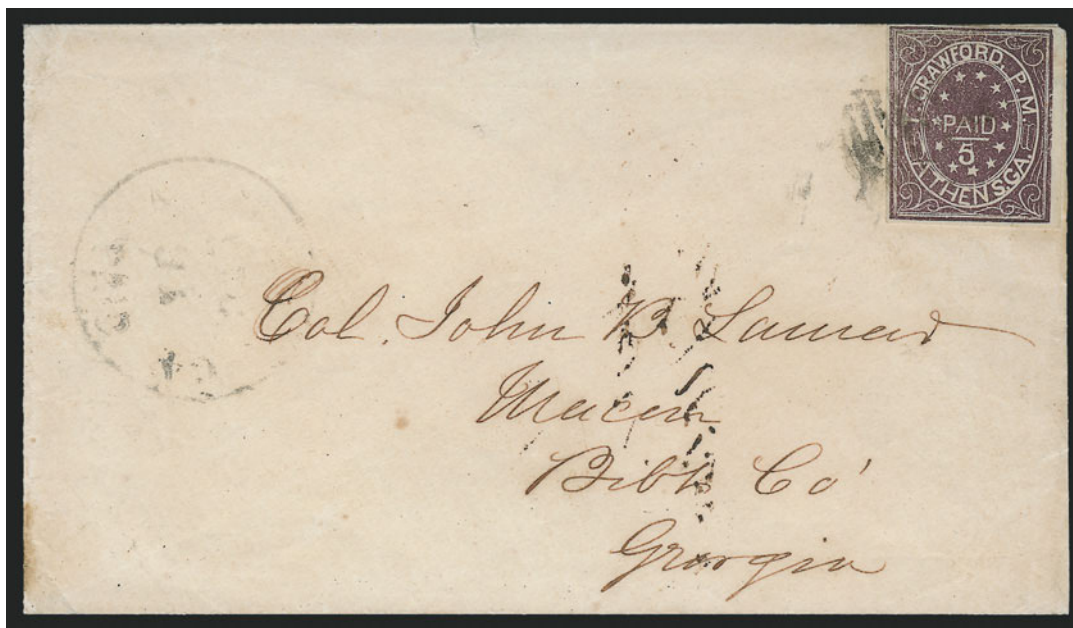 CRAWFORD, P.M.
PAID
5
ATHENS, GA.
Col. John B Lamar
Macon
Bibb Co'
Georgia